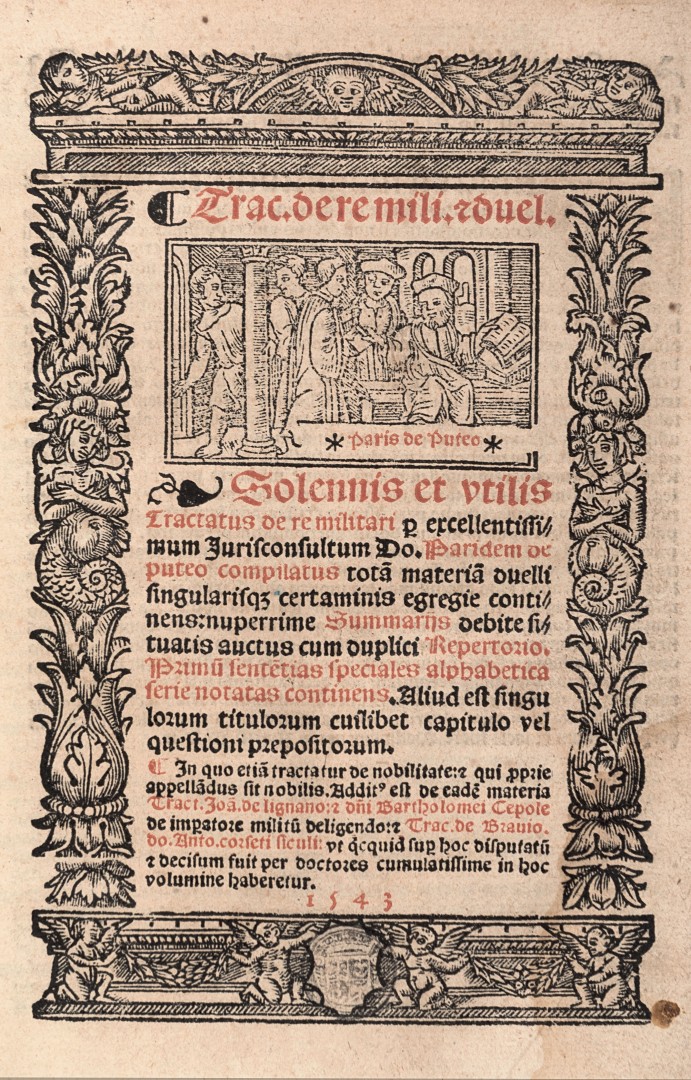 ¶ Trac. de re mili. ⁊ duel.
* Paris de Puteo *
❧ Solennis et vtilis
Tractatus de re militari ꝑ excellentissi/
mum Jurisconsultum Do. Paridem de
puteo compilatus totā materiā duelli
singularisqꝫ certaminis egregie conti/
nens: nuperrime Summarijs debite si/
tuatis auctus cum duplici Repertorio.
Primū sentētias speciales alphabetica
serie notatas continens. Aliud est singu
lorum titulorum cuilibet capitulo vel
questioni prepositorum.
¶ In quo etiā tractatur de nobilitate: ⁊ qui ꝓprie
appellādus sit nobilis. Additꝰ est de eadē materia
Tract. Joā. de lignano: ⁊ dn̄i Bartholomei Cepole
de imꝑatore militū deligendo: ⁊ Trac. de Brauio.
do. Anto. corseti siculi: vt q̇cquid suꝑ hoc disputatū
⁊ decisum fuit per doctores cumulatissime in hoc
volumine haberetur.
1543